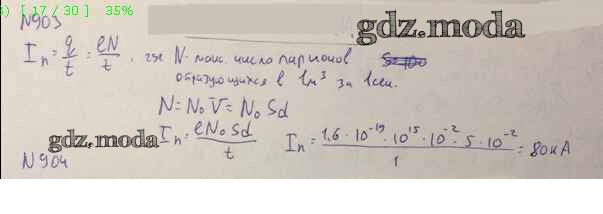 [ 17 / 30 ] 35%
N903
gdz.moda
Iн = q/t = eN/t, где N- макс. число пар ионов
образующихся в 1м³ за 1сек.
N = N₀ V = N₀ Sd
gdz.moda
Iн = eN₀Sd/t Iн = 1.6 · 10⁻¹⁹ · 10¹⁵ · 10⁻² · 5 · 10⁻² / 1 = 80нА
N904